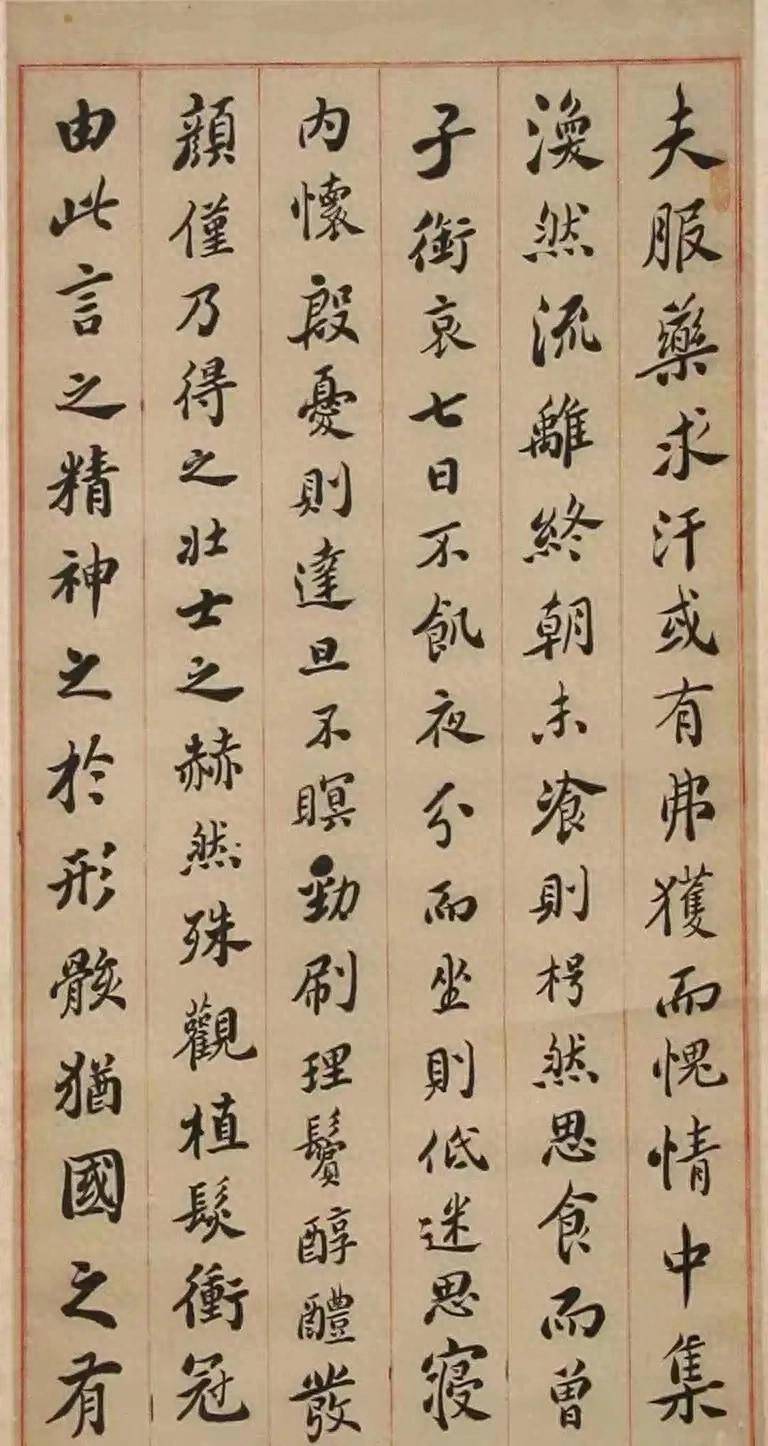 夫服藥求汗或有弗獲而愧情中集
渙然流離終朝未飡則枵然思食而曾
子銜哀七日不飢夜分而坐則低迷思寢
内懷殷憂則達旦不瞑勁刷理鬢醇醴發
顔僅乃得之壯士之赫然殊觀植髮衝冠
由此言之精神之於形骸猶國之有